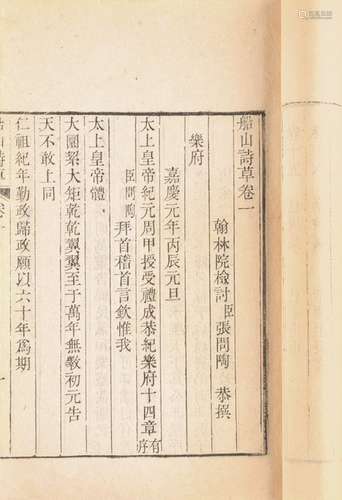 船山詩草卷一
翰林院檢討臣張問陶 恭撰
樂府
嘉慶元年丙辰元旦
太上皇帝紀元周甲授受禮成恭紀樂府十四章有序
臣問陶 拜首稽首言欽惟我
太上皇帝體
大圜絜大矩乾乾翼翼至于萬年無斁初元告
天不敢上同
仁祖紀年勤政歸政願以六十年爲期
船山詩草 卷一 一